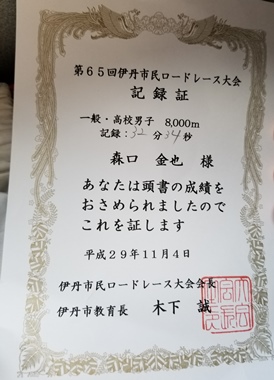 第65回伊丹市民ロードレース大会
記録証
一般・高校男子 8,000m
記録:32分34秒
森口 金也 様
あなたは頭書の成績を
おさめられましたので
これを証します
平成29年11月4日
伊丹市民ロードレース大会会長
伊丹市教育長 木下 誠